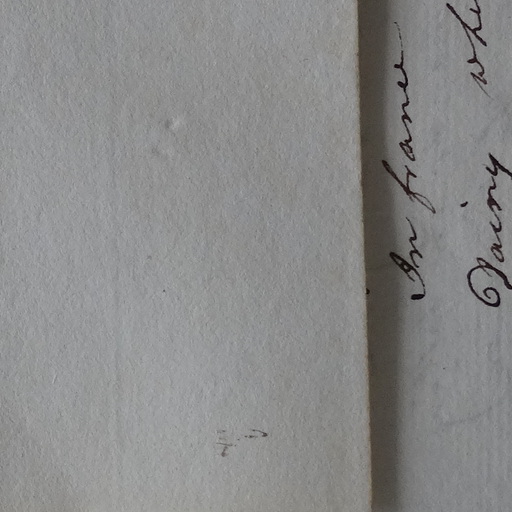 In france
Dainy whe